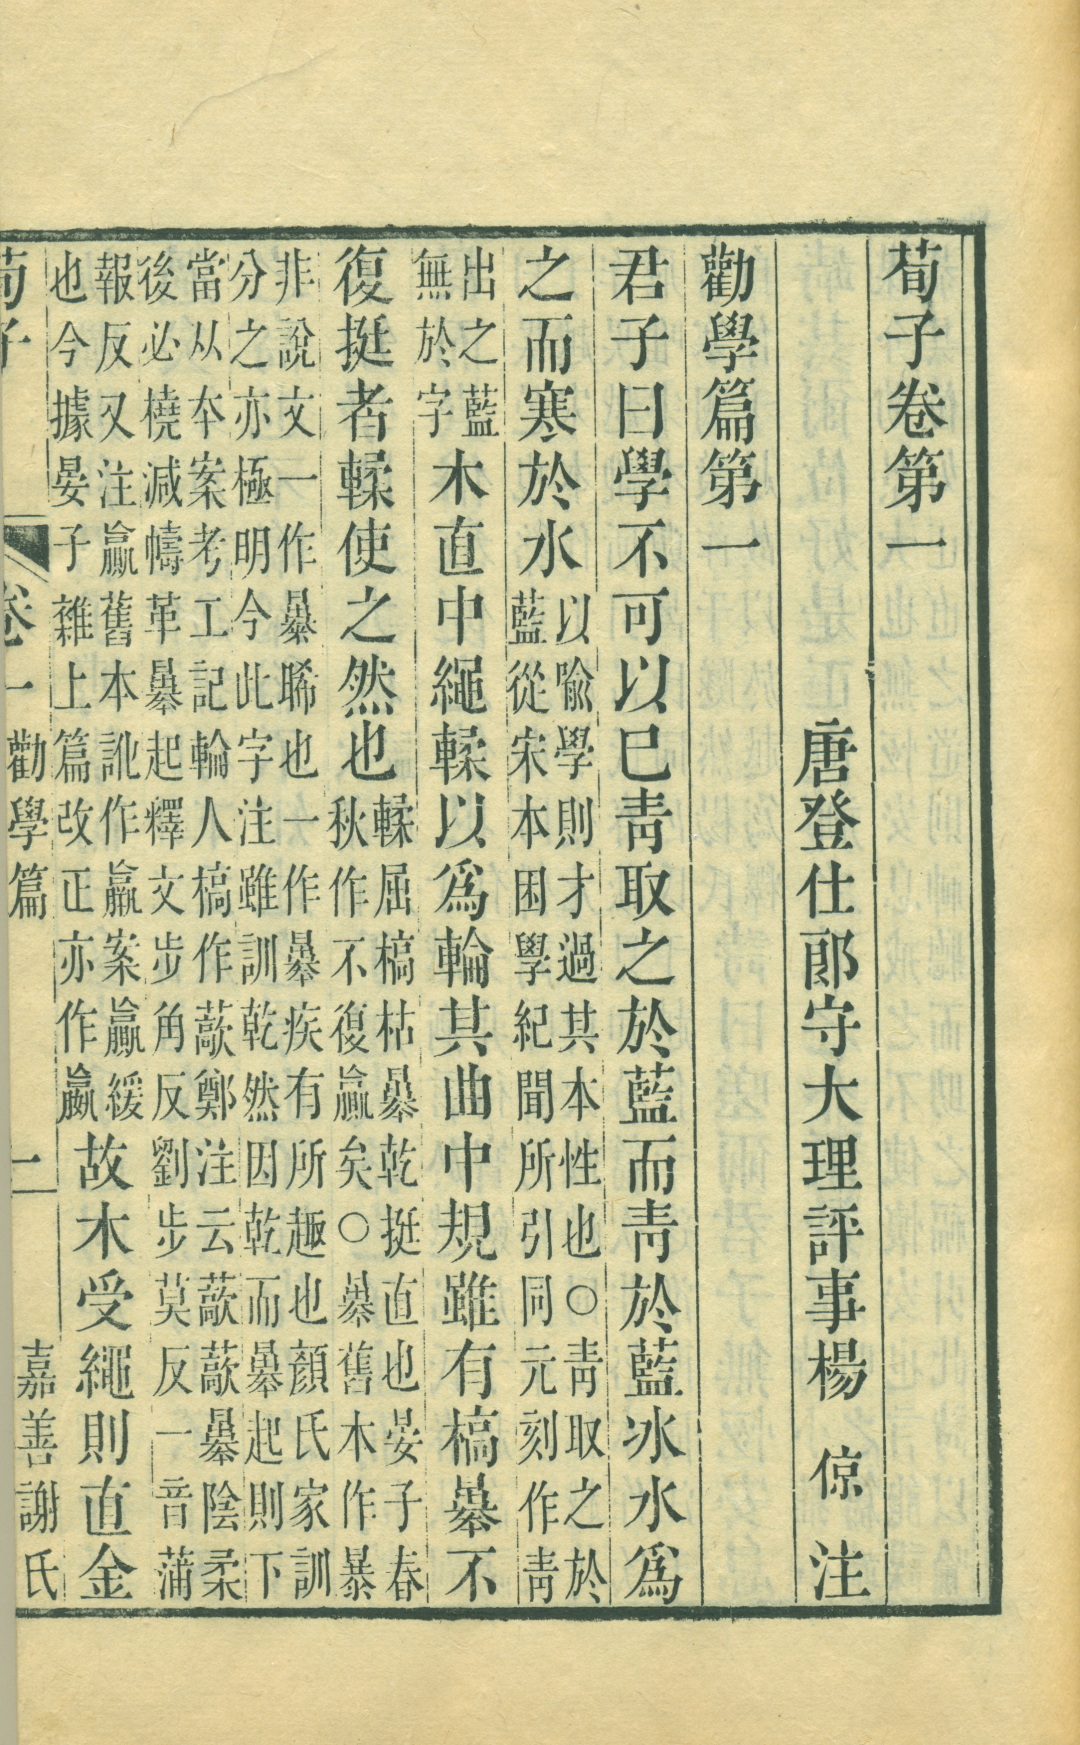 荀子卷第一
唐登仕郎守大理評事楊 倞 注
勸學篇第一
君子曰學不可以已靑取之於藍而靑於藍冰水爲
之而寒於水
以喻學則才過其本性也○靑取之於
藍從宋本困學紀聞所引同元刻作靑
出之藍
無於字
木直中繩輮以爲輪其曲中規雖有槁暴不
復挺者輮使之然也
輮屈槁枯暴乾挺直也晏子春
秋作不復贏矣○㬥舊木作暴
非說文一作㬥晞也一作㬥疾有所趣也顏氏家訓
分之亦極明今此字注雖訓乾然因乾而㬥起則下
當从夲案考工記輪人槁作藃鄭注云藃藃㬥陰柔
後必橈減幬革㬥起釋文步角反劉步莫反一音蒲
報反又注贏舊本訛作羸案贏緩
也今據晏子雜上篇改正亦作嬴
故木受繩則直金
荀子
卷一 勸學篇
嘉善謝氏